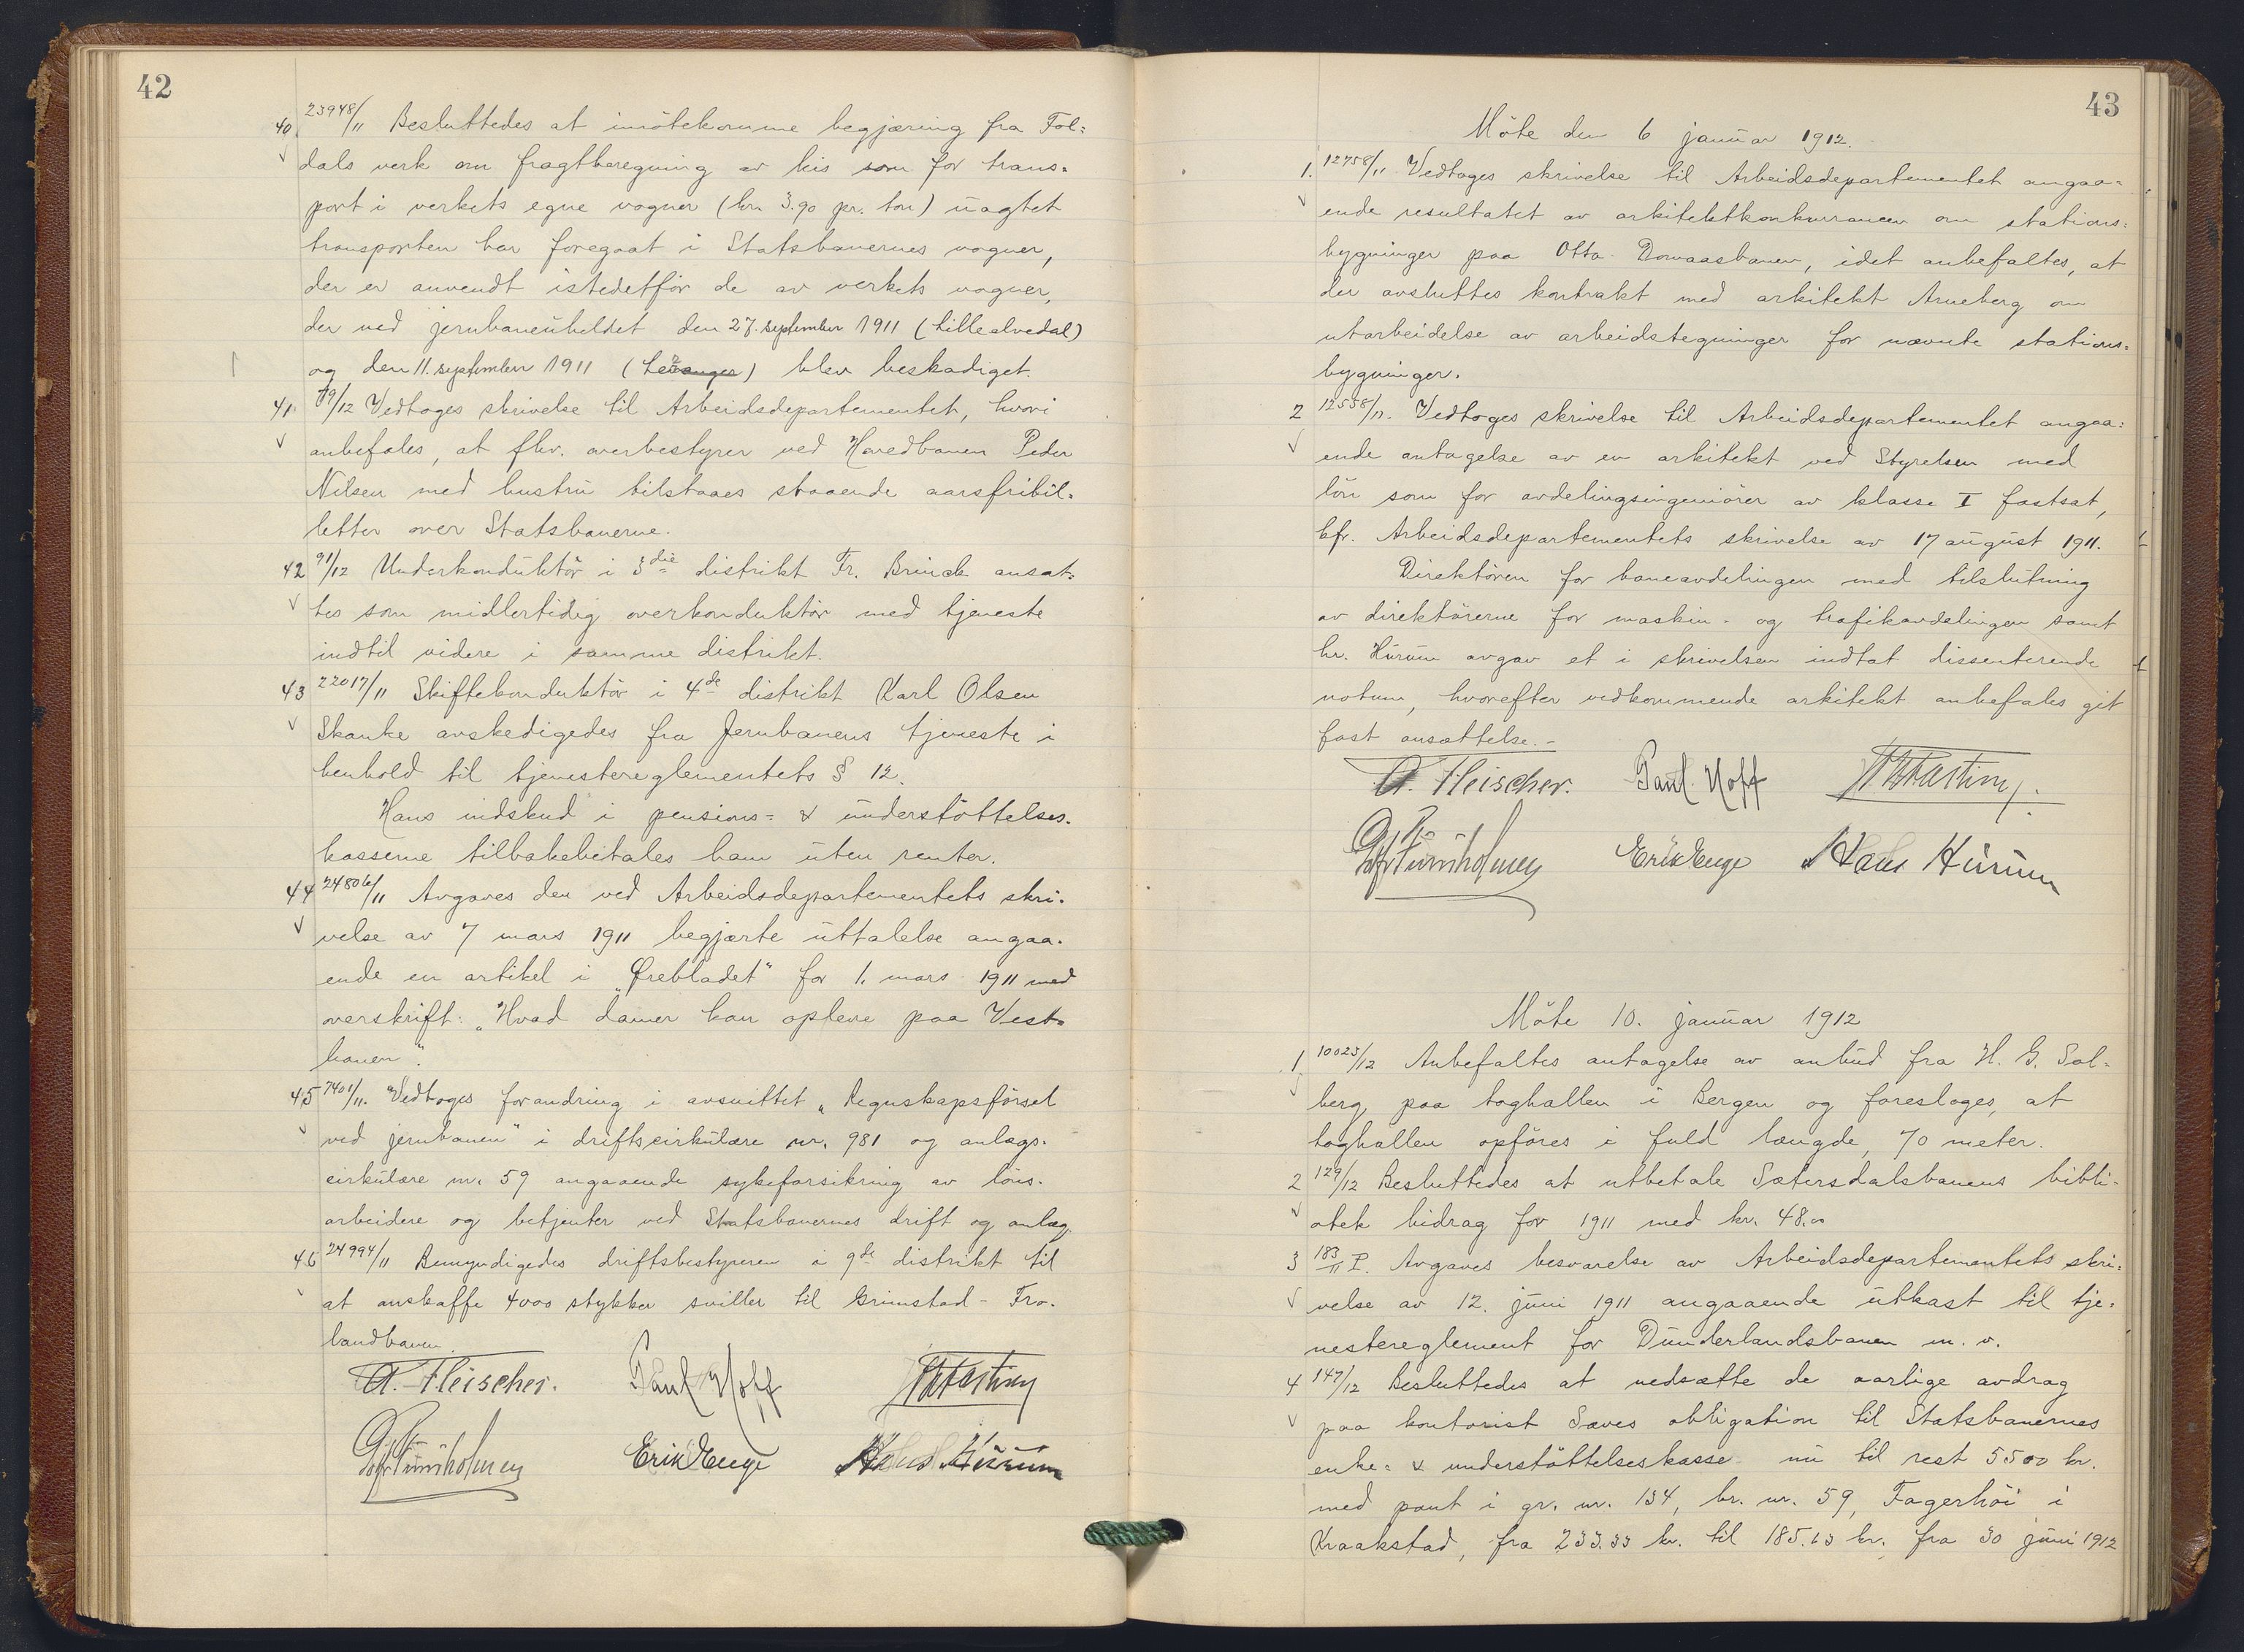 42
40 23948/11 Besluttedes at imötekomme begjæring fra Fol=
dals verk om fragtberegning av kis som for trans=
port i verkets egne vogner (kr. 3.90 pr. ton) uagtet
transporten har foregaat i Statsbanernes vogner,
der er anvendt istedetfor de av verkets vogner,
der ved jernbaneuheldet den 27. september 1911 (Lilleelvedal)
og den 11. september 1911 (Levanger) blev beskadiget.
41 79/12 Vedtoges skrivelse til Arbeidsdepartementet, hvori
anbefales, at fhv. overbestyrer ved Hovedbanen Peder
Nilsen med hustru tilstaaes staaende aarsfribil=
letter over Statsbanerne.
42 91/12 Underkonduktör i 3die distrikt Fr. Brinck ansat=
tes som midlertidig overkonduktör med tjeneste
indtil videre i samme distrikt.
43 22017/11 Skiftekonduktör i 4de distrikt Karl Olsen
Skanke avskedigedes fra Jernbanens tjeneste i
henhold til tjenestereglementets § 12.
Hans indskud i pensions= & understöttelses=
kasserne tilbakebetales ham uten renter.
44 24806/11 Avgaves den ved Arbeidsdepartementets skri=
velse av 7 mars 1911 begjærte uttalelse angaa=
ende en artikel i „Örebladet“ for 1. mars 1911 med
overskrift: „Hvad damer kan opleve paa Vest=
banen“.
45 7401/11. Vedtoges forandring i avsnittet „Regnskapsförsel
ved jernbanen“ i driftscirkulære nr. 981 og anlægs=
cirkulære nr. 59 angaaende sykeforsikring av löns=
arbeidere og betjenter ved Statsbanernes drift og anlæg.
46 24994/11 Bemyndigedes driftsbestyreren i 9de distrikt til
at anskaffe 4000 stykker sviller til Grimstad - Fro=
landbanen.
A. Fleischer. Paul Hoff
Erik Enge Hans Hürum
43
Möte den 6 januar 1912.
1. 12758/11 Vedtoges skrivelse til Arbeidsdepartementet angaa=
ende resultatet av arkitektkonkurrancen om stations=
bygninger paa Otta - Domaasbanen, idet anbefaltes, at
der avsluttes kontrakt med arkitekt Arneberg om
utarbeidelse av arbeidstegninger for nævnte stations=
bygninger.
2 12558/11. Vedtoges skrivelse til Arbeidsdepartementet angaa=
ende antagelse av en arkitekt ved Styrelsen med
lön som for avdelingsingeniörer av klasse I fastsat,
kfr. Arbeidsdepartementets skrivelse av 17 august 1911.
Direktören for baneavdelingen med tilslutning
av direktörerne for maskin- og trafikavdelingen samt
hr. Hürum avgav et i skrivelsen indtat dissenterende
votum, hvorefter vedkommende arkitekt anbefales git
fast ansættelse.-
A. Fleischer. Paul Hoff
Erik Enge Hans Hürum
Möte 10. januar 1912
1 10023/12 Anbefaltes antagelse av anbud fra H. G. Sol=
berg paa toghallen i Bergen og foresloges, at
toghallen opföres i fuld længde, 70 meter.
2 129/12 Besluttedes at utbetale Sætersdalsbanens bibli=
otek bidrag for 1911 med kr. 48.00
3 183/11 P. Avgaves besvarelse av Arbeidsdepartementets skri=
velse av 12. juni 1911 angaaende utkast til tje=
nestereglement for Dunderlandsbanen m. v.
4 147/12 Besluttedes at nedsætte de aarlige avdrag
paa kontorist Sæves obligation til Statsbanernes
enke= & understöttelseskasse nu til rest 5500 kr.
med pant i gr. nr. 134, br. nr. 59, Fagerhöi i
Kraakstad, fra 233.33 kr. til 185.13 kr. fra 30 juni 1912